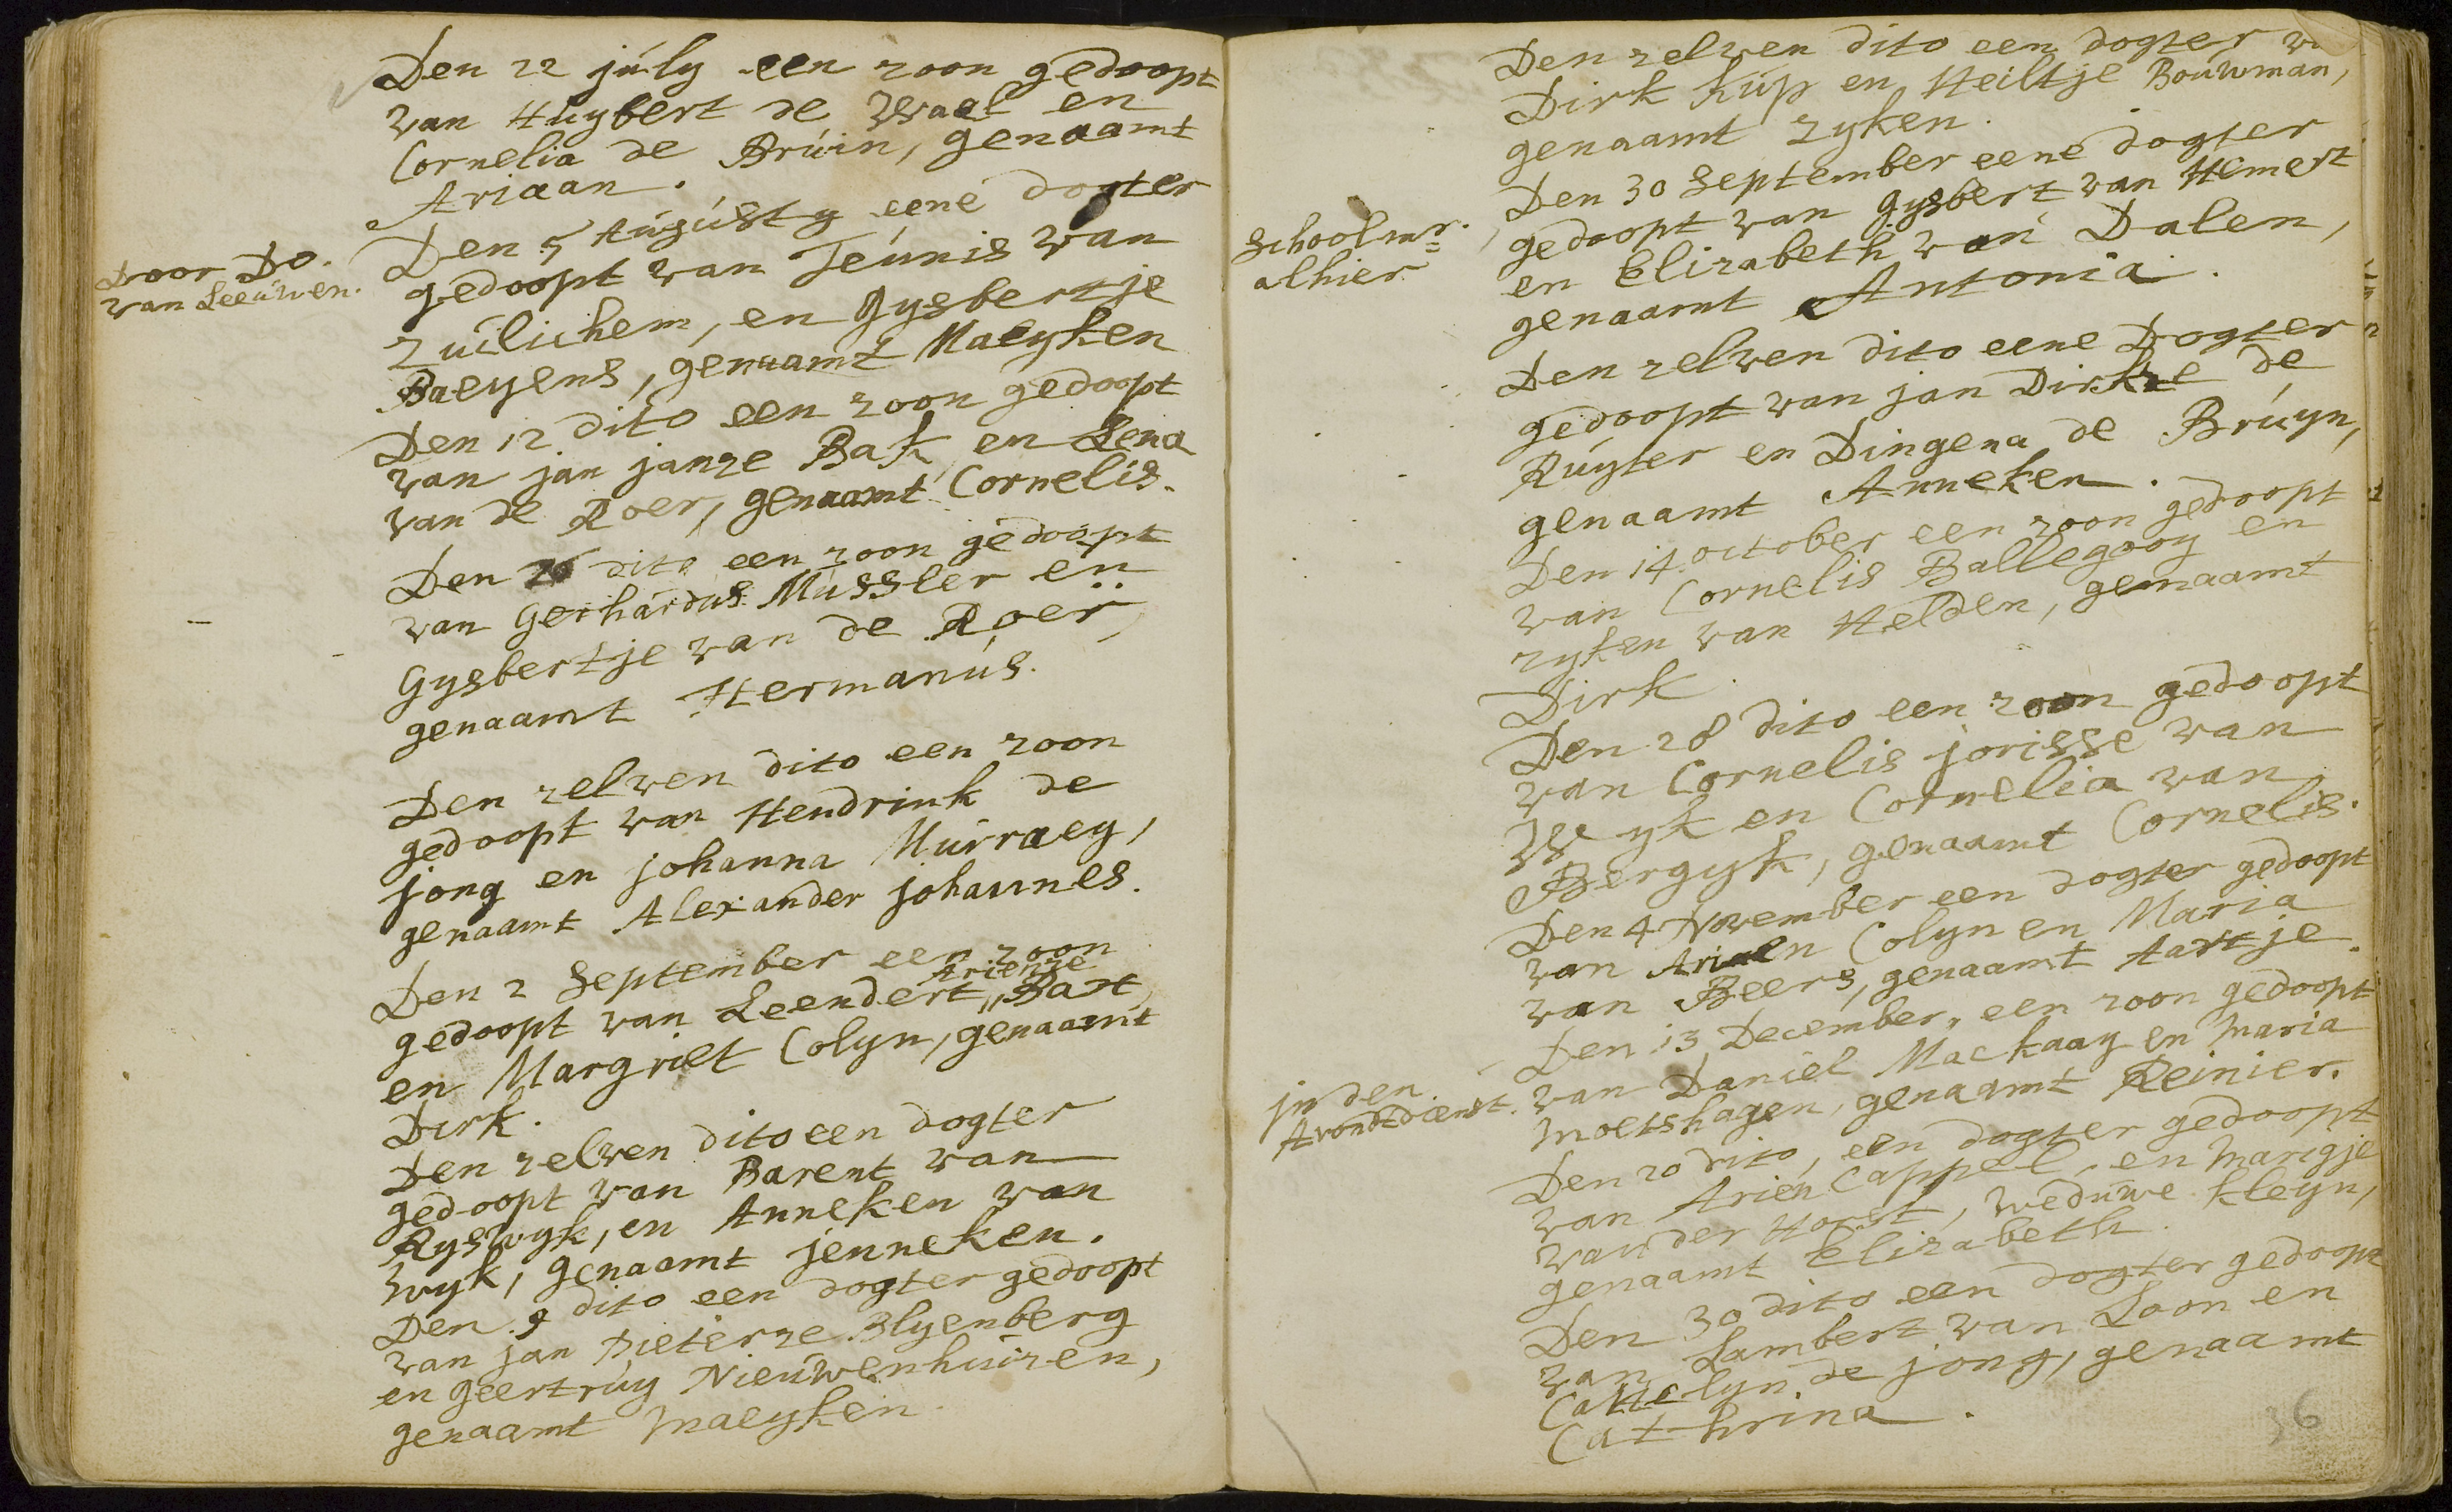 Den 22 júly een zoon gedoopt
van Húybert de Waal en
Cornelia de Brúin, genaamt
Ariaan.
Door Do.
van Leeúwen.
Den 5 Aúgústy eene dogter
gedoopt van Teúnis van
Zúilichem, en Gysbertje
Baeyens, genaamt Maeyken
Den 12 dito een zoon gedoopt
van jan janze Bak en Lena
van de Roer, genaamt Cornelis.
Den 26 dito een zoon gedoopt
van Gerhardús Mússler en
Gysbertje van de Roer,
genaamt Hermanús.
Den zelven dito een zoon
gedoopt van Hendrink de
jong en johanna Múrraey,
genaamt Alexander johannes.
Den 2 September een zoon
Arienze
gedoopt van Leendert,, Bax
en Margriet Colyn, genaamt
Dirk.
Den zelven dito een dogter
gedoopt van Barent van
Ryswyk, en Anneken van
Wyk, genaamt jenneken.
Den 9 dito een dogter gedoopt
van jan Pieterze Blyenberg
en geertrúy Nieúwenhúizen,
genaamt Maeyken.
Den zelven dito een dogter
Dirk Kúp en Heiltje Boúwman,
genaamt Zyken.
Schoolmr.
alhier
Den 30 September eene dogter
gedoopt van Gysbert van Hemert
en Elizabeth van Dalen,
genaamt Antonia.
Den zelven dito eene Dogter
gedoopt van jan Dirkze de
Rúyter en Dingena de Brúyn,
genaamt Anneken.
Den 14 october een zoon gedoopt
van Cornelis Ballegooy en
zyken van Helden, genaamt
Dirk.
Den 28 dito een zoon gedoopt
van Cornelis jorisse van
Wyk en Cornelia van
Bergyk, genaamt Cornelis.
Den 4 November een dogter gedoopt
van Arien Colyn en Maria
van Beers, genaamt Aartje.
jn den
Avondtdienst.
Den 13 December, een zoon gedoopt
van Daniel Mackaay en Maria
Moetshagen, genaamt Reinier.
Den 20 dito, een dogter gedoopt
van Arien Cappel, en Marigje
van der Horst, weduwe kleyn,
genaamt Elizabeth.
Den 30 dito een dogter gedoopt
van Lambert van Loon en
de jong, genaamt
Cathrina.
36